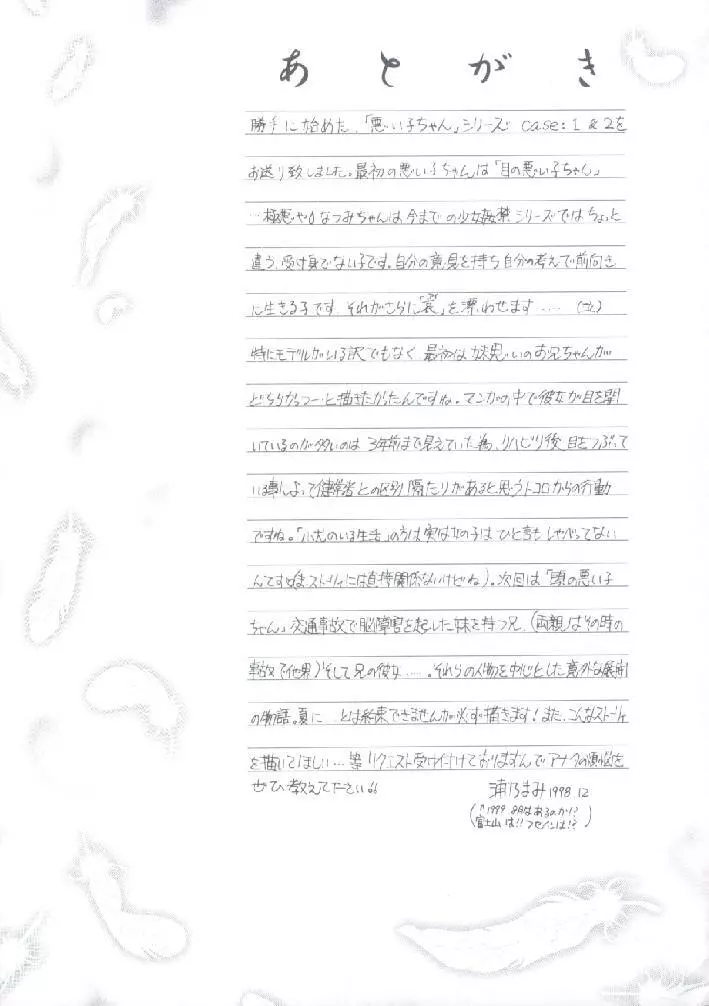 あとがき
勝手に始めた、「悪い子ちゃん」シリーズ case: 1 & 2を
お送り致しました。最初の悪い子ちゃんは「目の悪い子ちゃん」
なつみちゃんは今までの少女シリーズではちょっと
違う、受け身でない子です。自分の意見を持ち自分の考えで前向き
に生きる子です。それがさらに「哀」を漂わせます……
特にモデルがいる訳でもなく 最初は妹思いのお兄ちゃんが
と描きたかったんですね。マンガの中で彼女が目を開
いているのが多いのは 3年前まで見えていた為、リハビリ後 目をつぶって
いる事によって健常者との区別 隔たりがあると思うトコロからの行動
ですね。「のいる生活」の方は実は女の子は ひと言も しゃべってない
んですね ストーリィには直接関係ないけどね)。次回は「頭の悪い子
ちゃん」交通事故で脳障害を起こした妹を持つ兄、(両親はその時の
事故で他界)そして兄の彼女……。それらの人物を中心とした意外な展開
の物語。夏に…とは約束できませんが必ず描きます!また、こんなストーリィ
を描いてほしい…等 リクエスト受け付けておりますんでアナタのを
ぜひ教えてください
まみ 1998.12
(↑1999 8月はあるのか!?
富士山は!! フセインは!?)